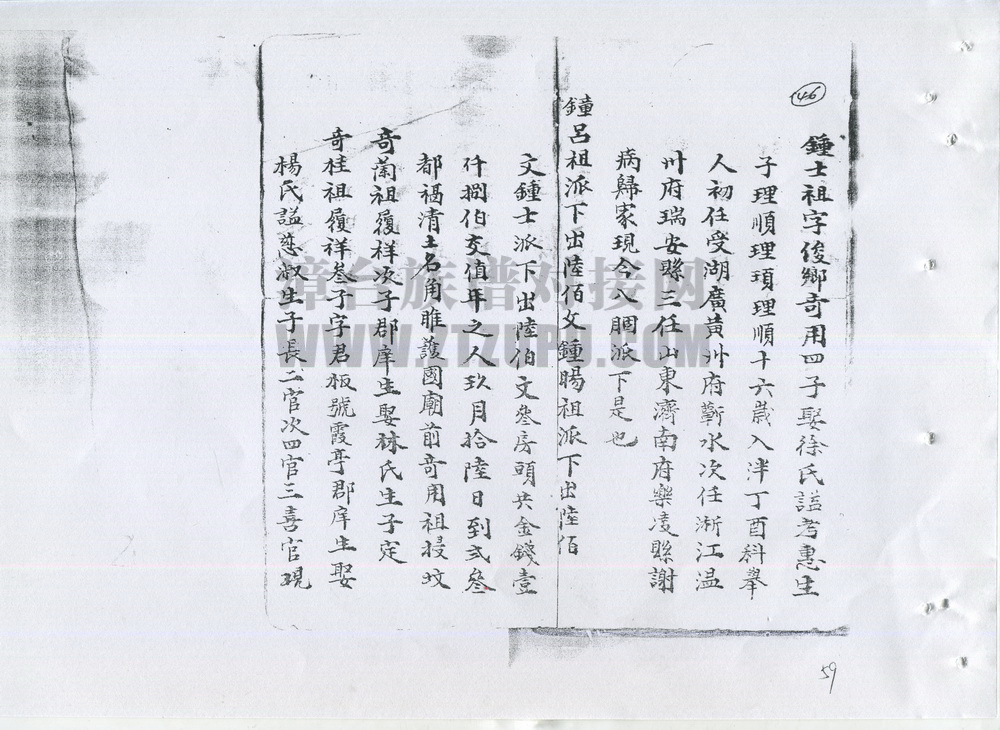 46
鍾士祖字俊鄉奇用四子娶徐氏諡考惠生
子理順理項理順十六歲入泮丁酉科舉
人初任受湖廣黃州府蘄水次任浙江温
州府瑞安縣三任山東濟南府樂凌縣謝
病歸家現今八腘派下是也
鐘呂祖派下出陸佰文鍾暘祖派下出陸佰
文鍾士派下出陸伯文叁房頭共金錢壹
仟捌伯交值年之人玖月拾陸日到弍叁
都福清土名角雎護國廟前奇用祖授坟
奇蘭祖履祥次子郡庠生娶林氏生子定
奇桂祖履祥叁子字君板號霞亭郡庠生娶
楊氏諡慈淑生子長二官次四官三喜官現
漳台族谱对接网
WWW.ZTZUPU.COM
59